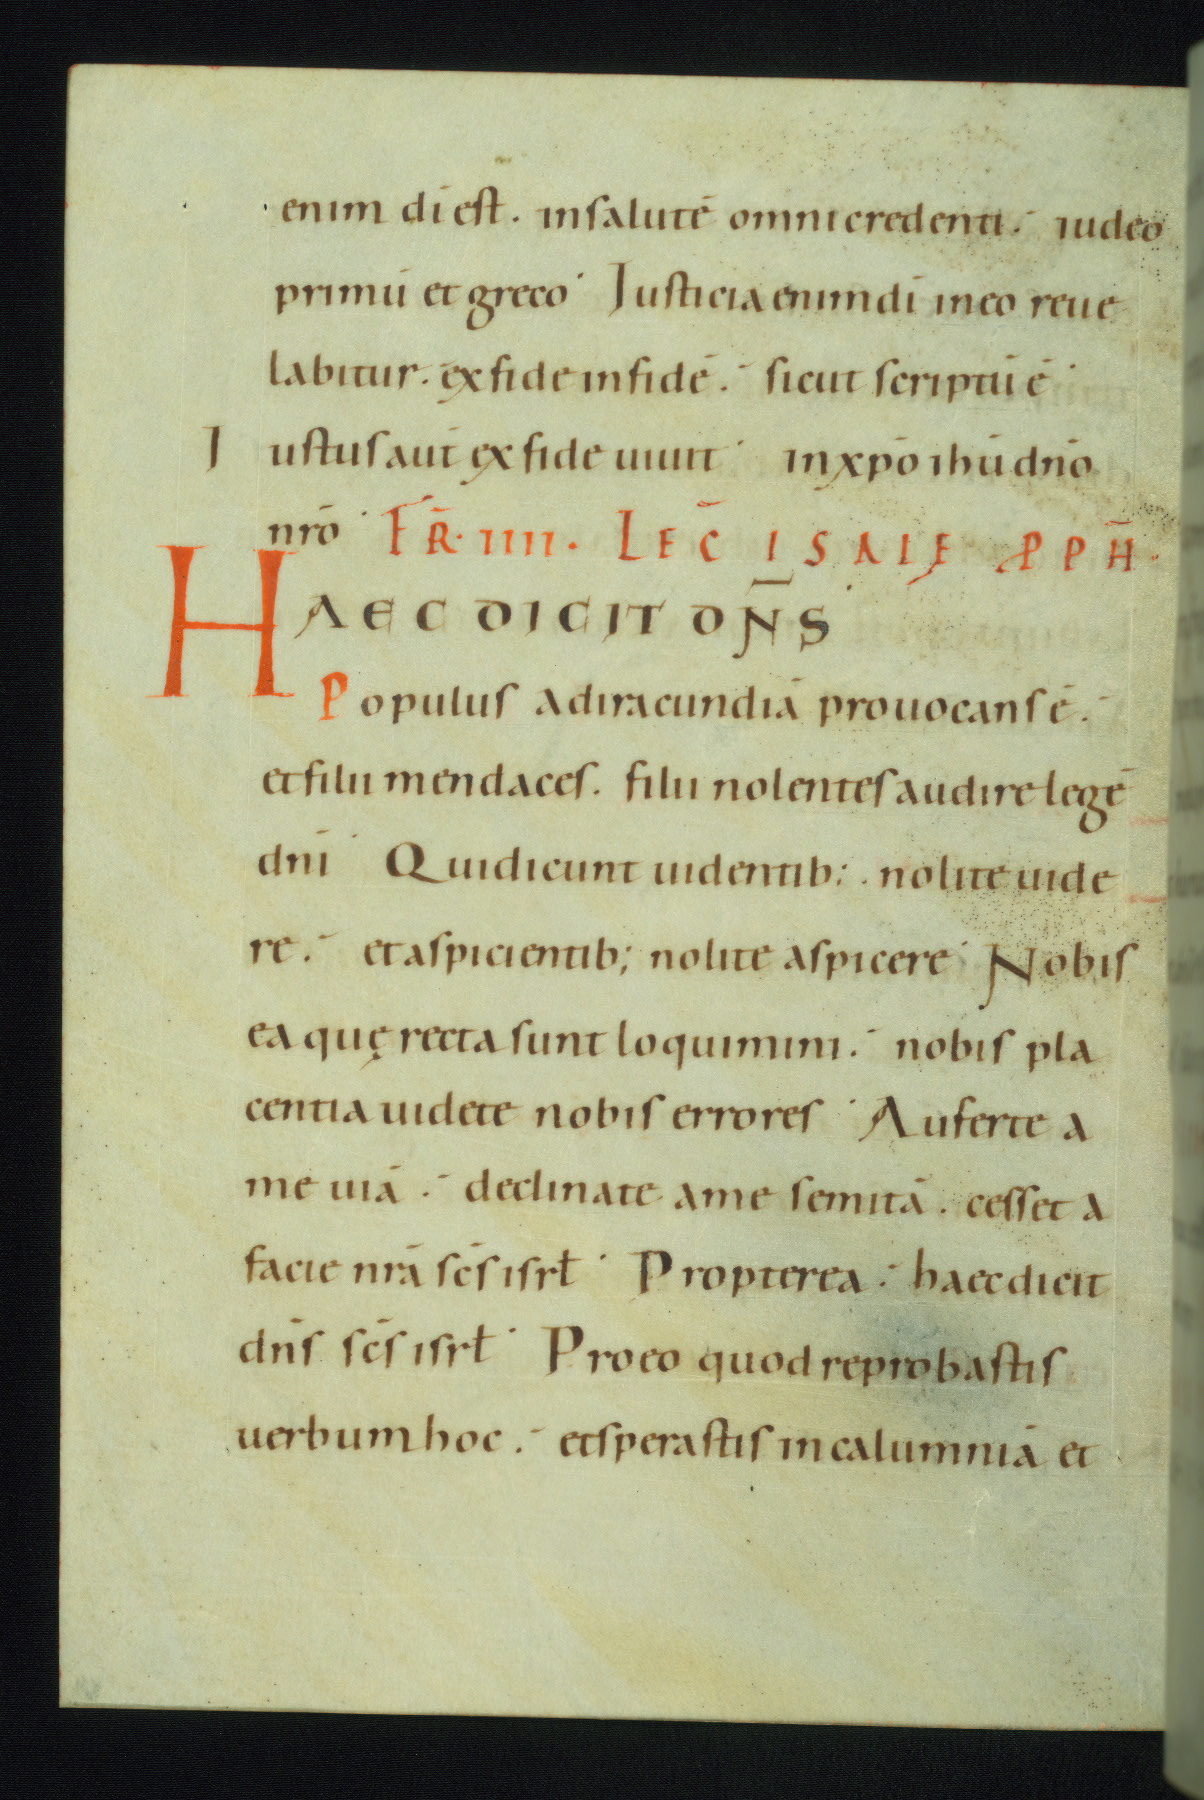 enim dī est. in salutē omni credenti. iudeo
primū et greco Iusticia enim dī in eo reue
labitur. ex fide in fidē. sicut scriptū ē
Iustus aut̄ ex fide uiuit in xp̄o ihū dn̄o
nr̄o FR̄. IIII. LEC̄ ISAIĘ PPH̄.
HAEC DICIT DN̄S
Populus ad iracundiā prouocans ē.
et filii mendaces. filii nolentes audire legē
dn̄i Qui dicunt uidentib; . nolite uide
re. et aspicientib; nolite aspicere Nobis
ea quę recta sunt loquimini. nobis pla
centia uidete nobis errores Auferte a
me uiā. declinate a me semitā. cesset a
facie nr̄a sc̄s isrł Propterea. haec dicit
dn̄s sc̄s isrł Pro eo quod reprobastis
uerbum hoc. et sperastis in calumniā et